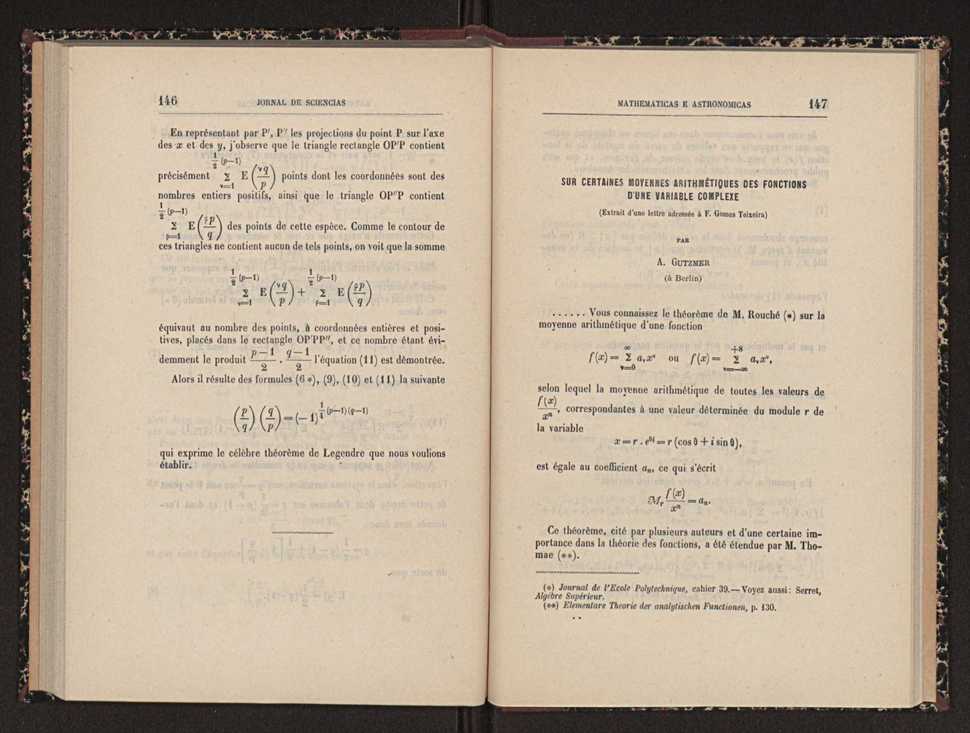 146 JORNAL DE SCIENCIAS
En représentant par P′, P″ les projections du point P sur l'axe
des x et des y, j'observe que le triangle rectangle OP′P contient
précisément \sum_{ν=1}^{\frac{1}{2}(p—1)} E\left(\frac{νq}{p}\right) points dont les coordonnées sont des
nombres entiers positifs, ainsi que le triangle OP″P contient
\sum_{ρ=1}^{\frac{1}{2}(p—1)} E\left(\frac{ρp}{q}\right) des points de cette espèce. Comme le contour de
ces triangles ne contient aucun de tels points, on voit que la somme
\sum_{ν=1}^{\frac{1}{2}(p—1)} E\left(\frac{νq}{p}\right) + \sum_{ρ=1}^{\frac{1}{2}(p—1)} E\left(\frac{ρp}{q}\right)
équivaut au nombre des points, à coordonnées entières et posi-
tives, placés dans le rectangle OP′PP″, et ce nombre étant évi-
demment le produit \frac{p—1}{2} . \frac{q—1}{2} l'équation (11) est démontrée.
Alors il résulte des formules (6 *), (9), (10) et (11) la suivante
\left(\frac{p}{q}\right) \left(\frac{q}{p}\right) = (—1)^{\frac{1}{4}(p—1)(q—1)}
qui exprime le célèbre théorème de Legendre que nous voulions
établir.
MATHEMATICAS E ASTRONOMICAS 147
SUR CERTAINES MOYENNES ARITHMÉTIQUES DES FONCTIONS
D'UNE VARIABLE COMPLEXE
(Extrait d'une lettre adressée à F. Gomes Teixeira)
PAR
A. GUTZMER
(à Berlin)
...... Vous connaissez le théorème de M. Rouché (*) sur la
moyenne arithmétique d'une fonction
f(x) = \sum_{ν=0}^{∞} a_ν x^ν ou f(x) = \sum_{ν=—∞}^{+8} a_ν x^ν,
selon lequel la moyenne arithmétique de toutes les valeurs de
\frac{f(x)}{x^n}, correspondantes à une valeur déterminée du module r de
la variable
x = r . e^{θi} = r (cos θ + i sin θ),
est égale au coefficient a_n, ce qui s'écrit
ℳ_r \frac{f(x)}{x^n} = a_n.
Ce théorème, cité par plusieurs auteurs et d'une certaine im-
portance dans la théorie des fonctions, a été étendue par M. Tho-
mae (**).
(*) Journal de l'Ecole Polytechnique, cahier 39.—Voyez aussi: Serret,
Algèbre Supérieur.
(**) Elementare Theorie der analytischen Functionen, p. 130.